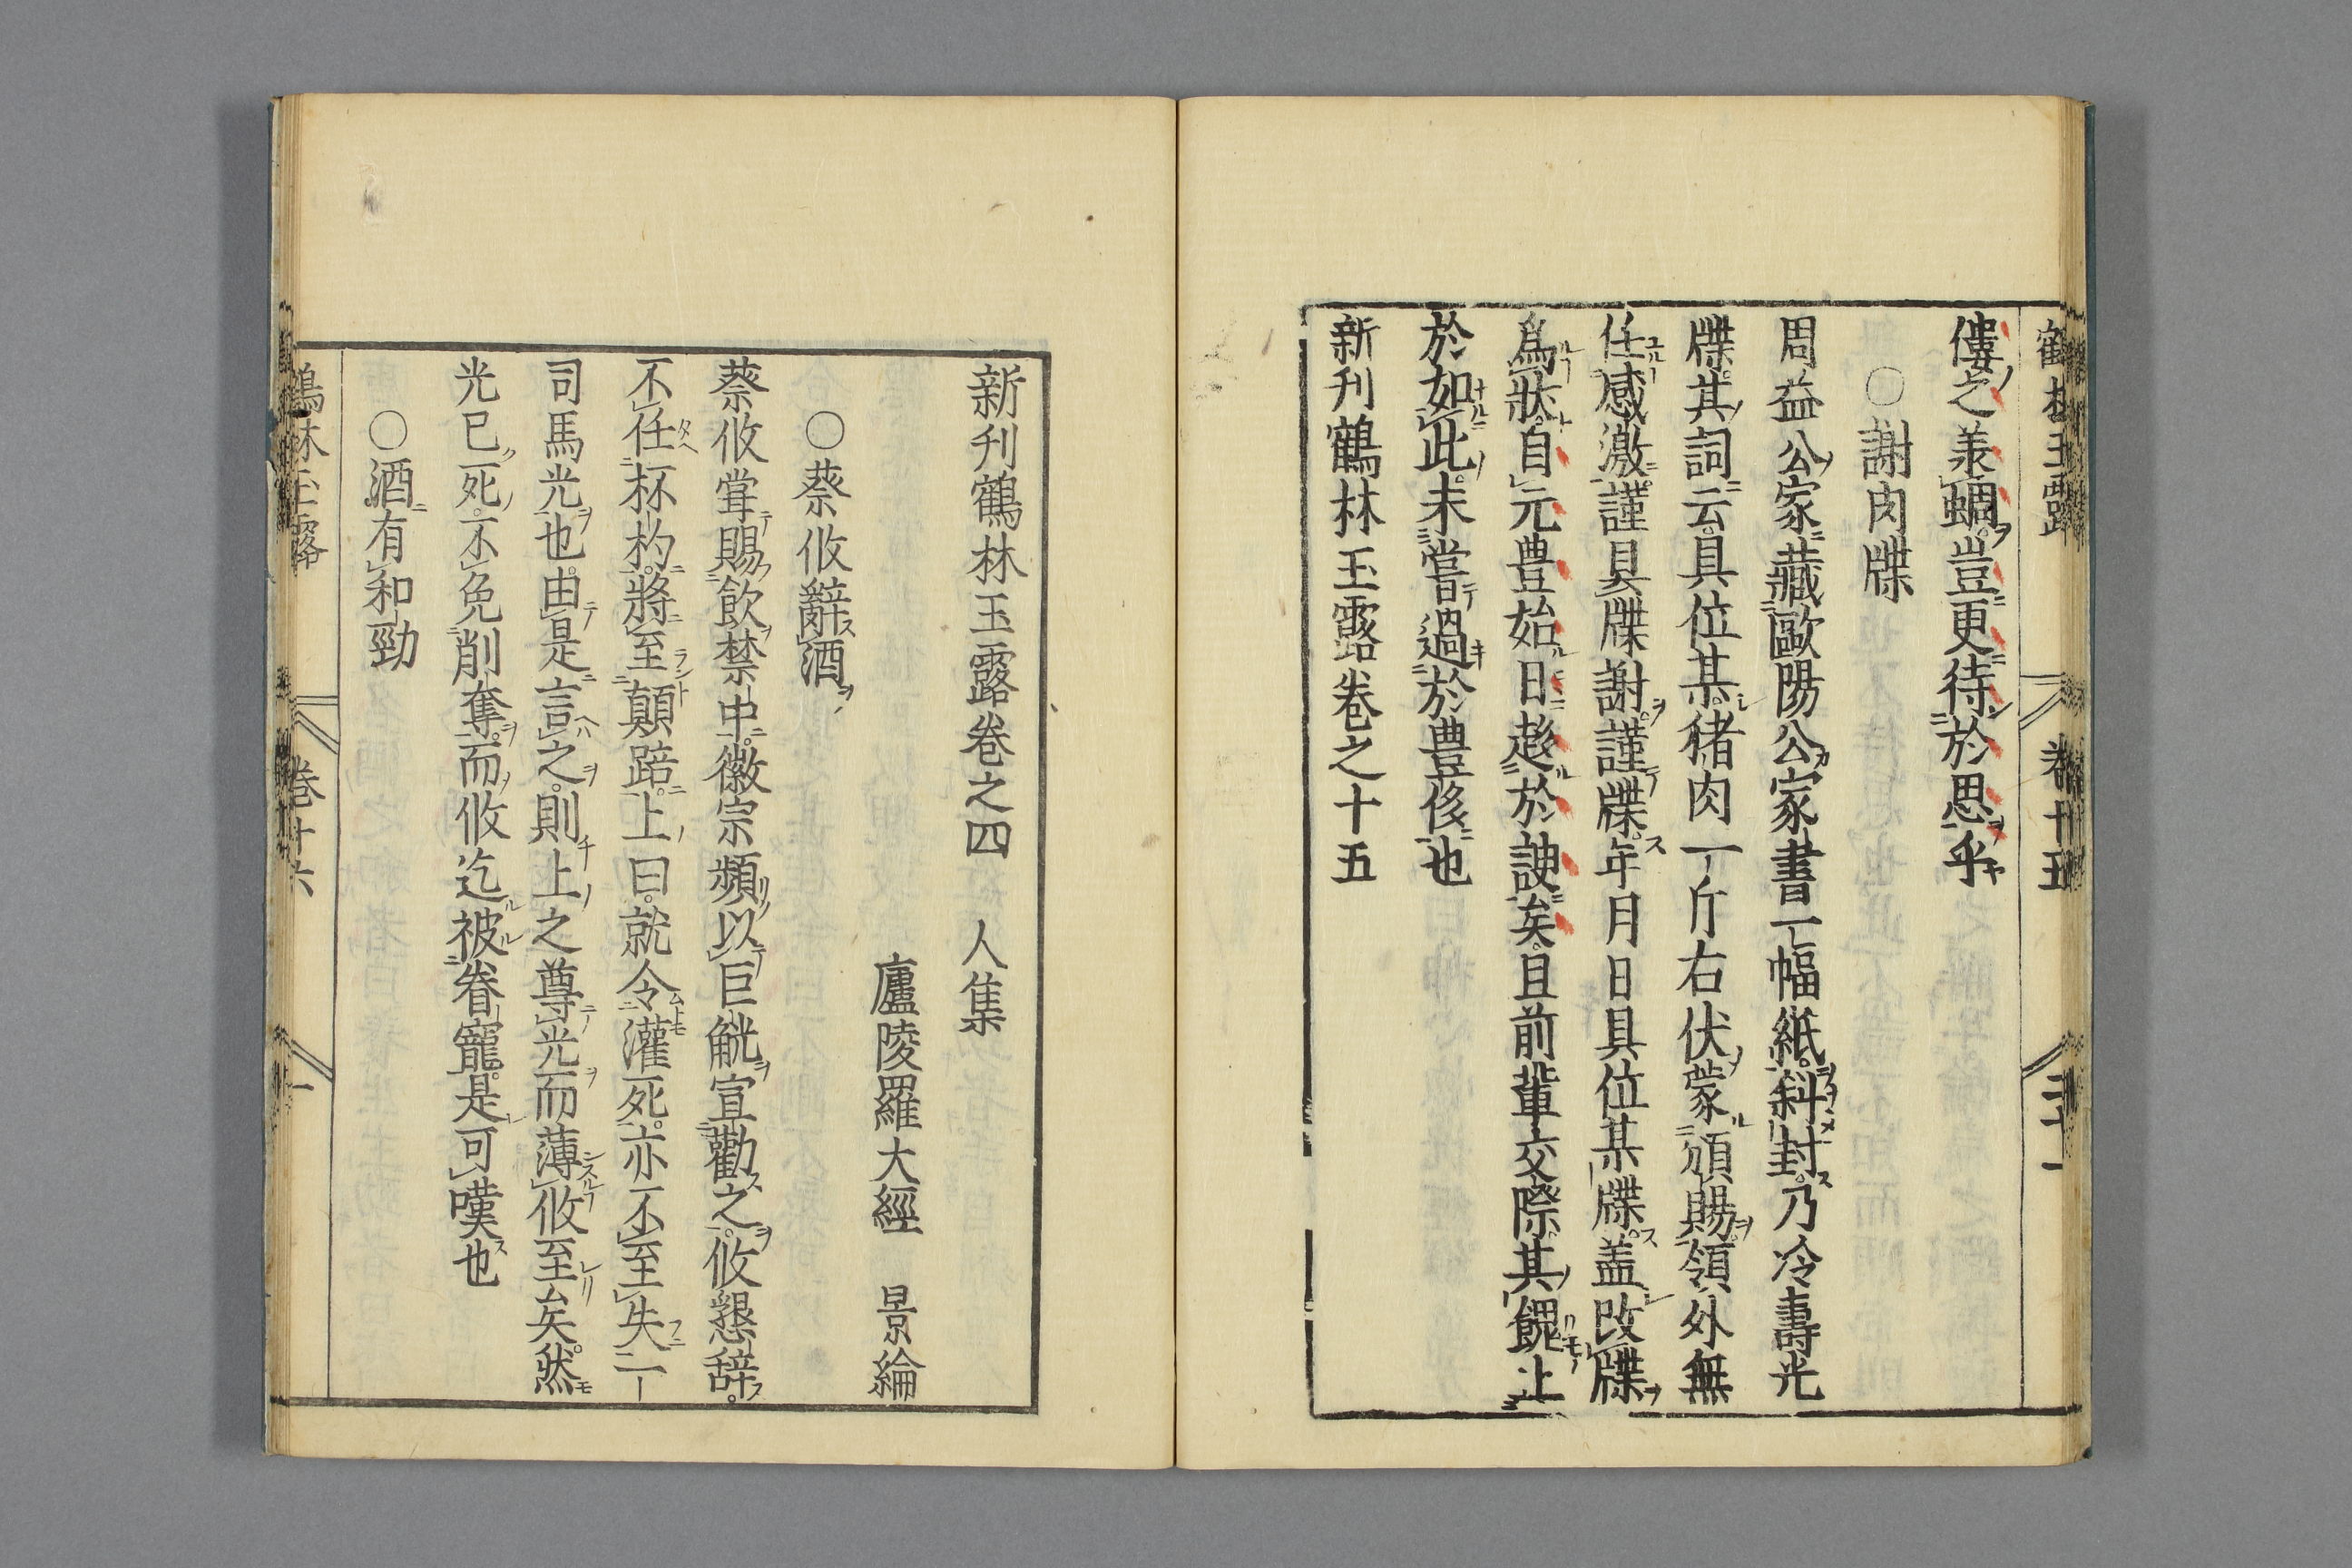 鶴林玉露 卷十五 二十一
僂之羕蜩豈更待於思乎
○謝肉牒
周益公家藏歐陽公家書一幅紙斜封乃冷壽光
牒其詞云具位某猪肉一斤右伏蒙頒賜領外無
任感激謹具牒謝謹牒年月日具位某牒盖改牒
爲狀自元豊始日趍於諛矣且前輩交際其餽止
於如此未嘗過於豊侈也
新刋鶴林玉露卷之十五
新刋鶴林玉露卷之四 人集
廬陵羅大經 景綸
○蔡攸辭酒
蔡攸甞賜飲禁中徽宗頻以巨觥宣勸之攸懇辞
不任杯杓將至顛踣上曰就令灌死亦不至失一
司馬光也由是言之則上之尊光而薄攸至矣然
光已死不免削奪而攸迄被眷寵是可嘆也
○酒有和勁
鶴林玉露 卷十六 一